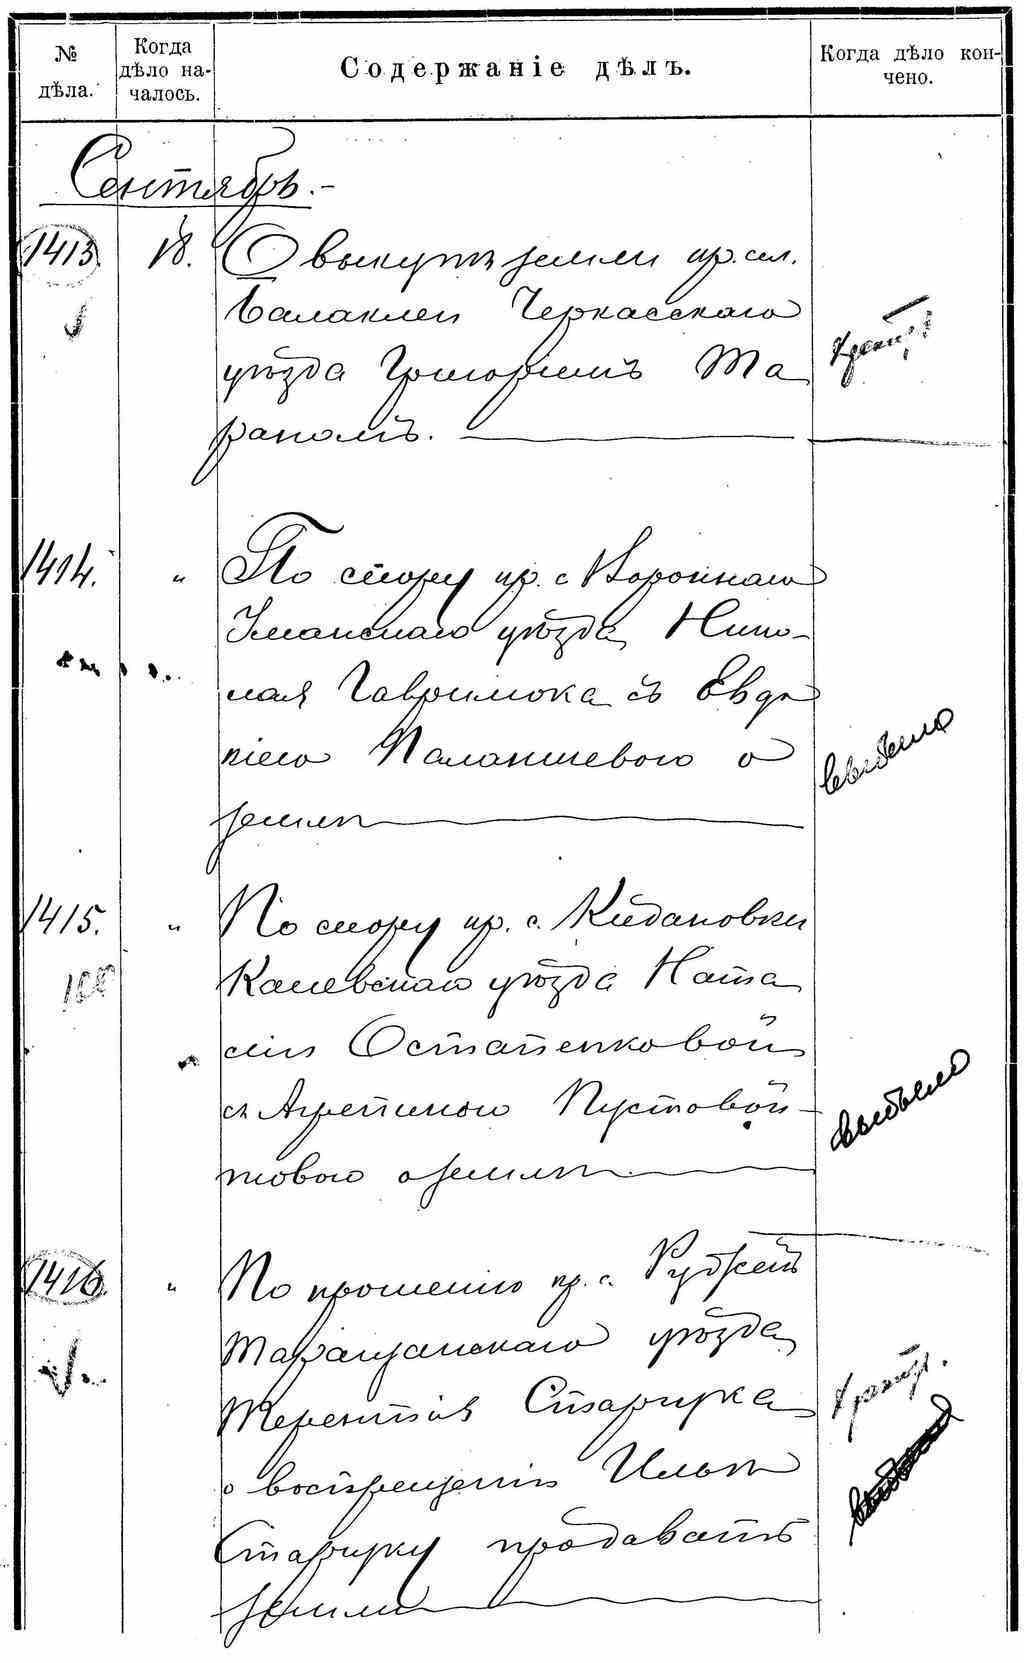 № дѣла.
Когда дѣло на-
чалось.
Содержаніе дѣлъ.
Когда дѣло кон-
чено.
Сентябрь.-
1413. 18. О выкупѣ земли кр. сел.
Балаклеи Черкасскаго
уѣзда Григоріемъ Та
раномъ.
1414. " По спору кр. с Вороннаго
Уманскаго уѣзда Нико-
лая Гаврилюка съ Евдо
кіею Паланшевою о
землѣ
1415. " По спору кр. с. Кидановки
Каневскаго уѣзда Ната
ліи Остапенковой
съ Агрепиною Пустовой-
товою о землѣ
выбыло
1416. " По прошенію кр. с.
Таращанскаго уѣзда
Терентія Старука
о воспрещеніи Ильѣ
Старуку продавать
земли